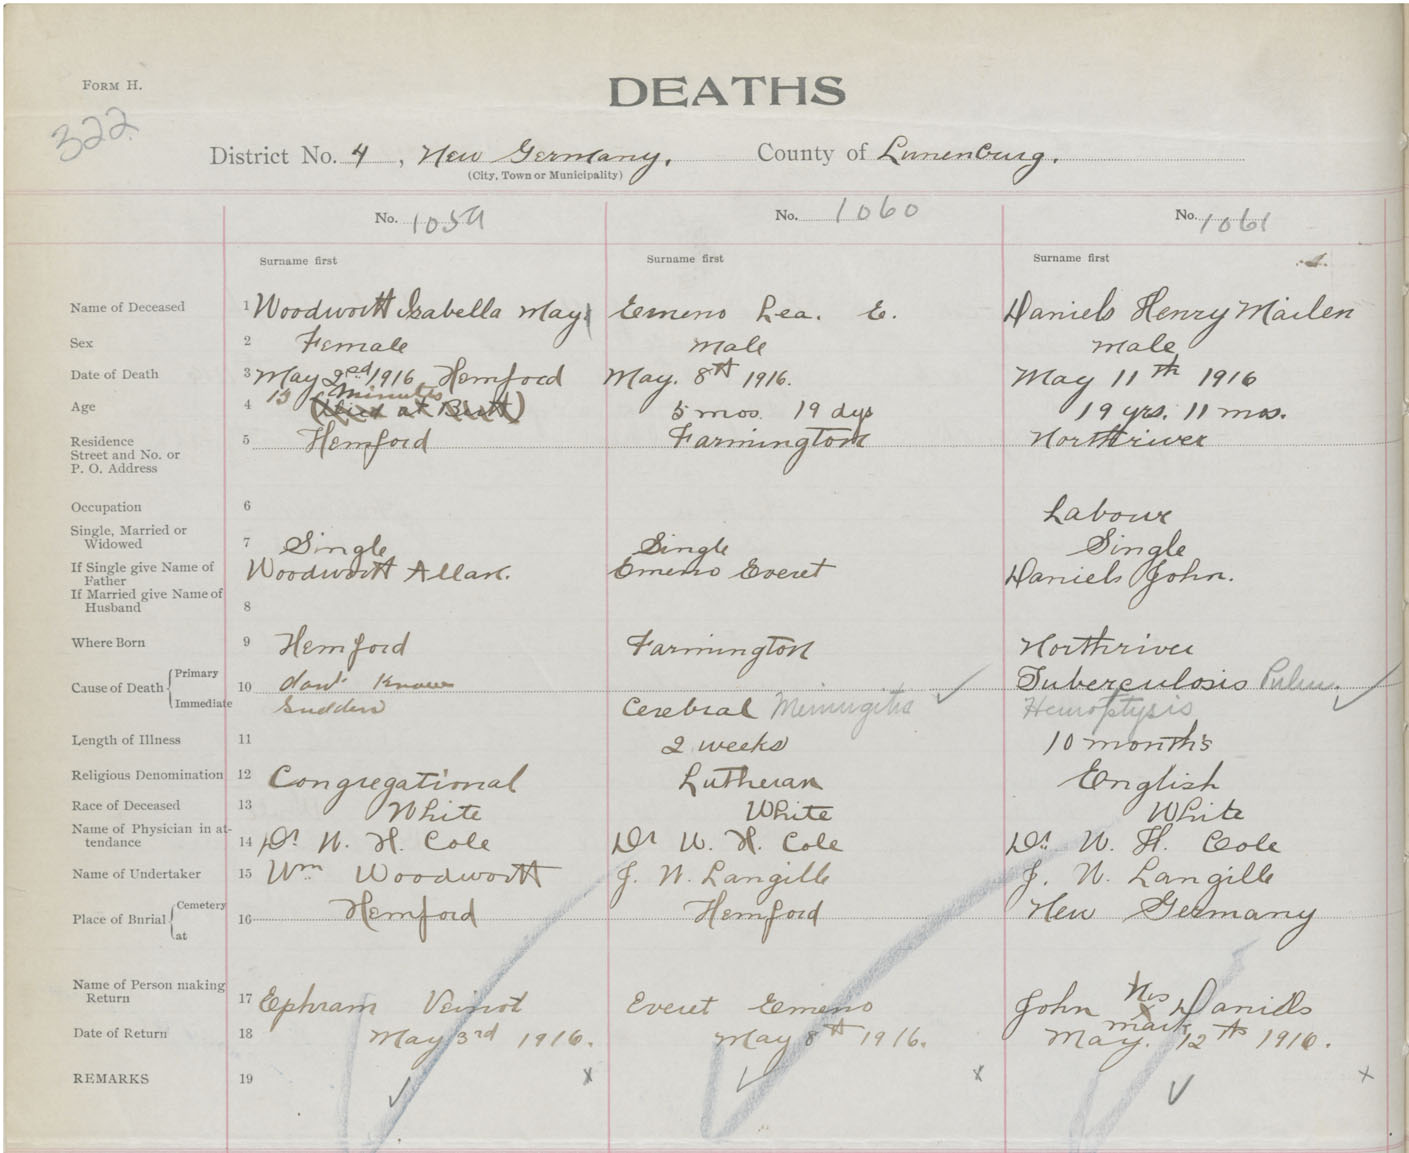 FORM H.
DEATHS
322
District No. 4, New Germany. County of Lunenburg.
(City, Town or Municipality)
No. 1059 No. 1060 No. 1061
Surname first Surname first Surname first
Name of Deceased 1 Woodworth Isabella May Emeno Lea. E. Daniels Henry Mailen
Sex 2 Female Male Male
Date of Death 3 May 2nd 1916 Hemford May. 8th 1916. May 11th 1916
Age 4 15 Minutes (Died at Birth) 5 mos. 19 dys 19 yrs. 11 mos.
Residence Street and No. or P. O. Address 5 Hemford Farmington Northriver
Occupation 6 Labour
Single, Married or Widowed 7 Single Single Single
If Single give Name of Father Woodworth Allan. Emeno Everet Daniels John.
If Married give Name of Husband 8
Where Born 9 Hemford Farmington Northriver
Cause of Death Primary 10 dont Know Tuberculosis Pulm.
Immediate Sudden Cerebral Meningitis Hemoptysis
Length of Illness 11 2 weeks 10 months
Religious Denomination 12 Congregational Lutheran English
Race of Deceased 13 White White White
Name of Physician in attendance 14 Dr W. H. Cole Dr W. H. Cole Dr. W. H. Cole
Name of Undertaker 15 Wm Woodworth J. W. Langille J. W. Langille
Place of Burial Cemetery at 16 Hemford Hemford New Germany
Name of Person making Return 17 Ephram Veinot Everet Emeno John his x mark Daniels
Date of Return 18 May 3rd 1916. May 8th 1916. May. 12th 1916.
REMARKS 19 x x x